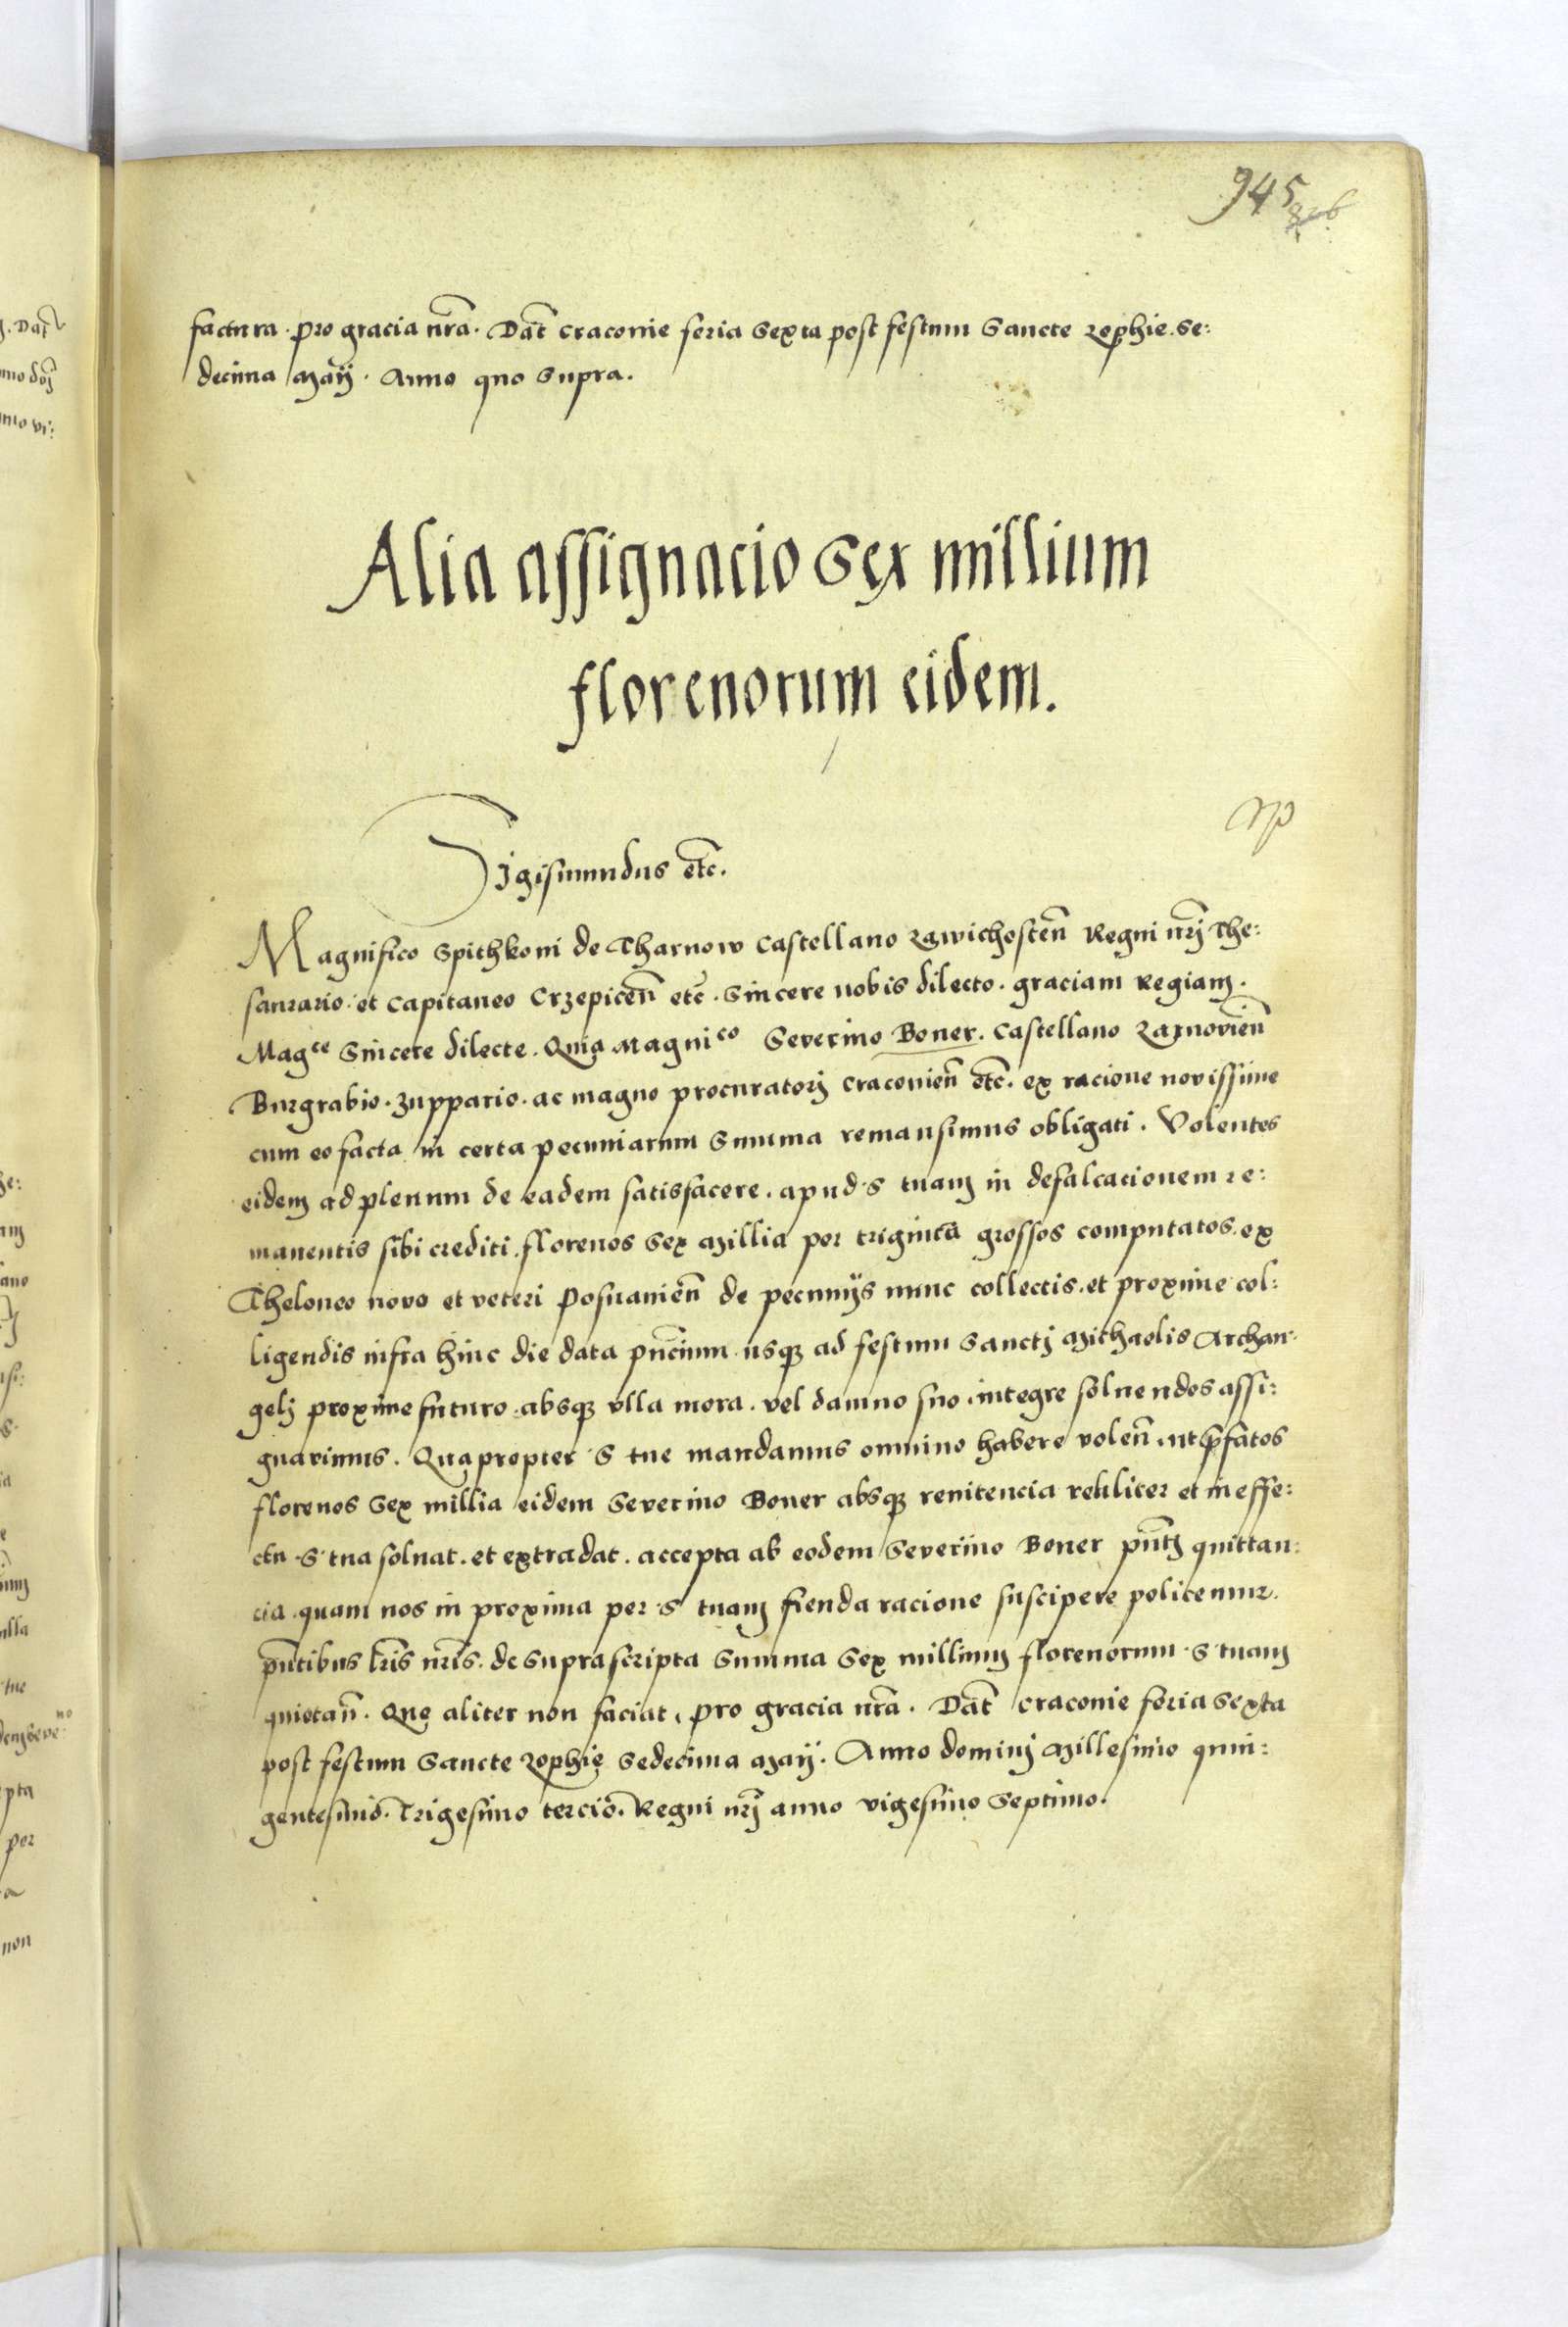 945
factura . pro gracia nrã . Dat̃ Cracovie feria Sexta post festum Sancte Zophie . Se:
decima Maÿ . Anno quo supra .
Alia assignacio Sex millium
florenorum eidem .
Sigismundus etc̃ .
Magnifico Spithkoni de Tharnow Castellano Zawichosteñ Regni nrĩ The:
saurario . et Capitaneo Crzepiceñ etc̃ . Sincere nobis dilecto . graciam Regiam .
Mag^ce Sincere dilecte . Quia Magni^co Severino Boner . Castellano Zarnovieñ
Burgrabio . Zuppario . ac magno procuratori Cracovieñ etc̃ . ex racione novissime
cum eo facta in certa pecuniarum Summa remansimus obligati . Volentes
eidem ad plenum de eadem satisfacere . apud S tuam in defalcacionem re:
manentis sibi crediti . florenos Sex Millia per triginta grossos computatos . ex
Theloneo novo et veteri Posnanieñ de pecunijs nunc collectis . et proxime col:
ligendis infra hinc die data pñcium usq3 ad festum Sancti Michaelis Archan:
geli proxime futuro . absq3 ulla mora . vel damno suo . integre solvendos assi:
gnavimus . Quapropter S tue mandamus omnino habere voleñ . ut p̃fatos
florenos Sex millia eidem Severino Boner absq3 renitencia realiter et in effe:
ctu . S tua solvat . et extradat . accepta ab eodem Severino Boner pñti quittan:
cia . quam nos in proxima per S tuam fienda racione suscipere policemur .
pñtibus lr̃is nr̃is . de Suprascripta Summa Sex millium florenorum S tuam
quietañ . Que aliter non faciat . pro gracia nrã . Dat̃ Cracovie feria Sexta
post festum Sancte Zophie Sedecima Maÿ . Anno domini Millesimo quin:
gentesimo . Trigesimo tercio . Regni nrĩ anno vigesimo Septimo .